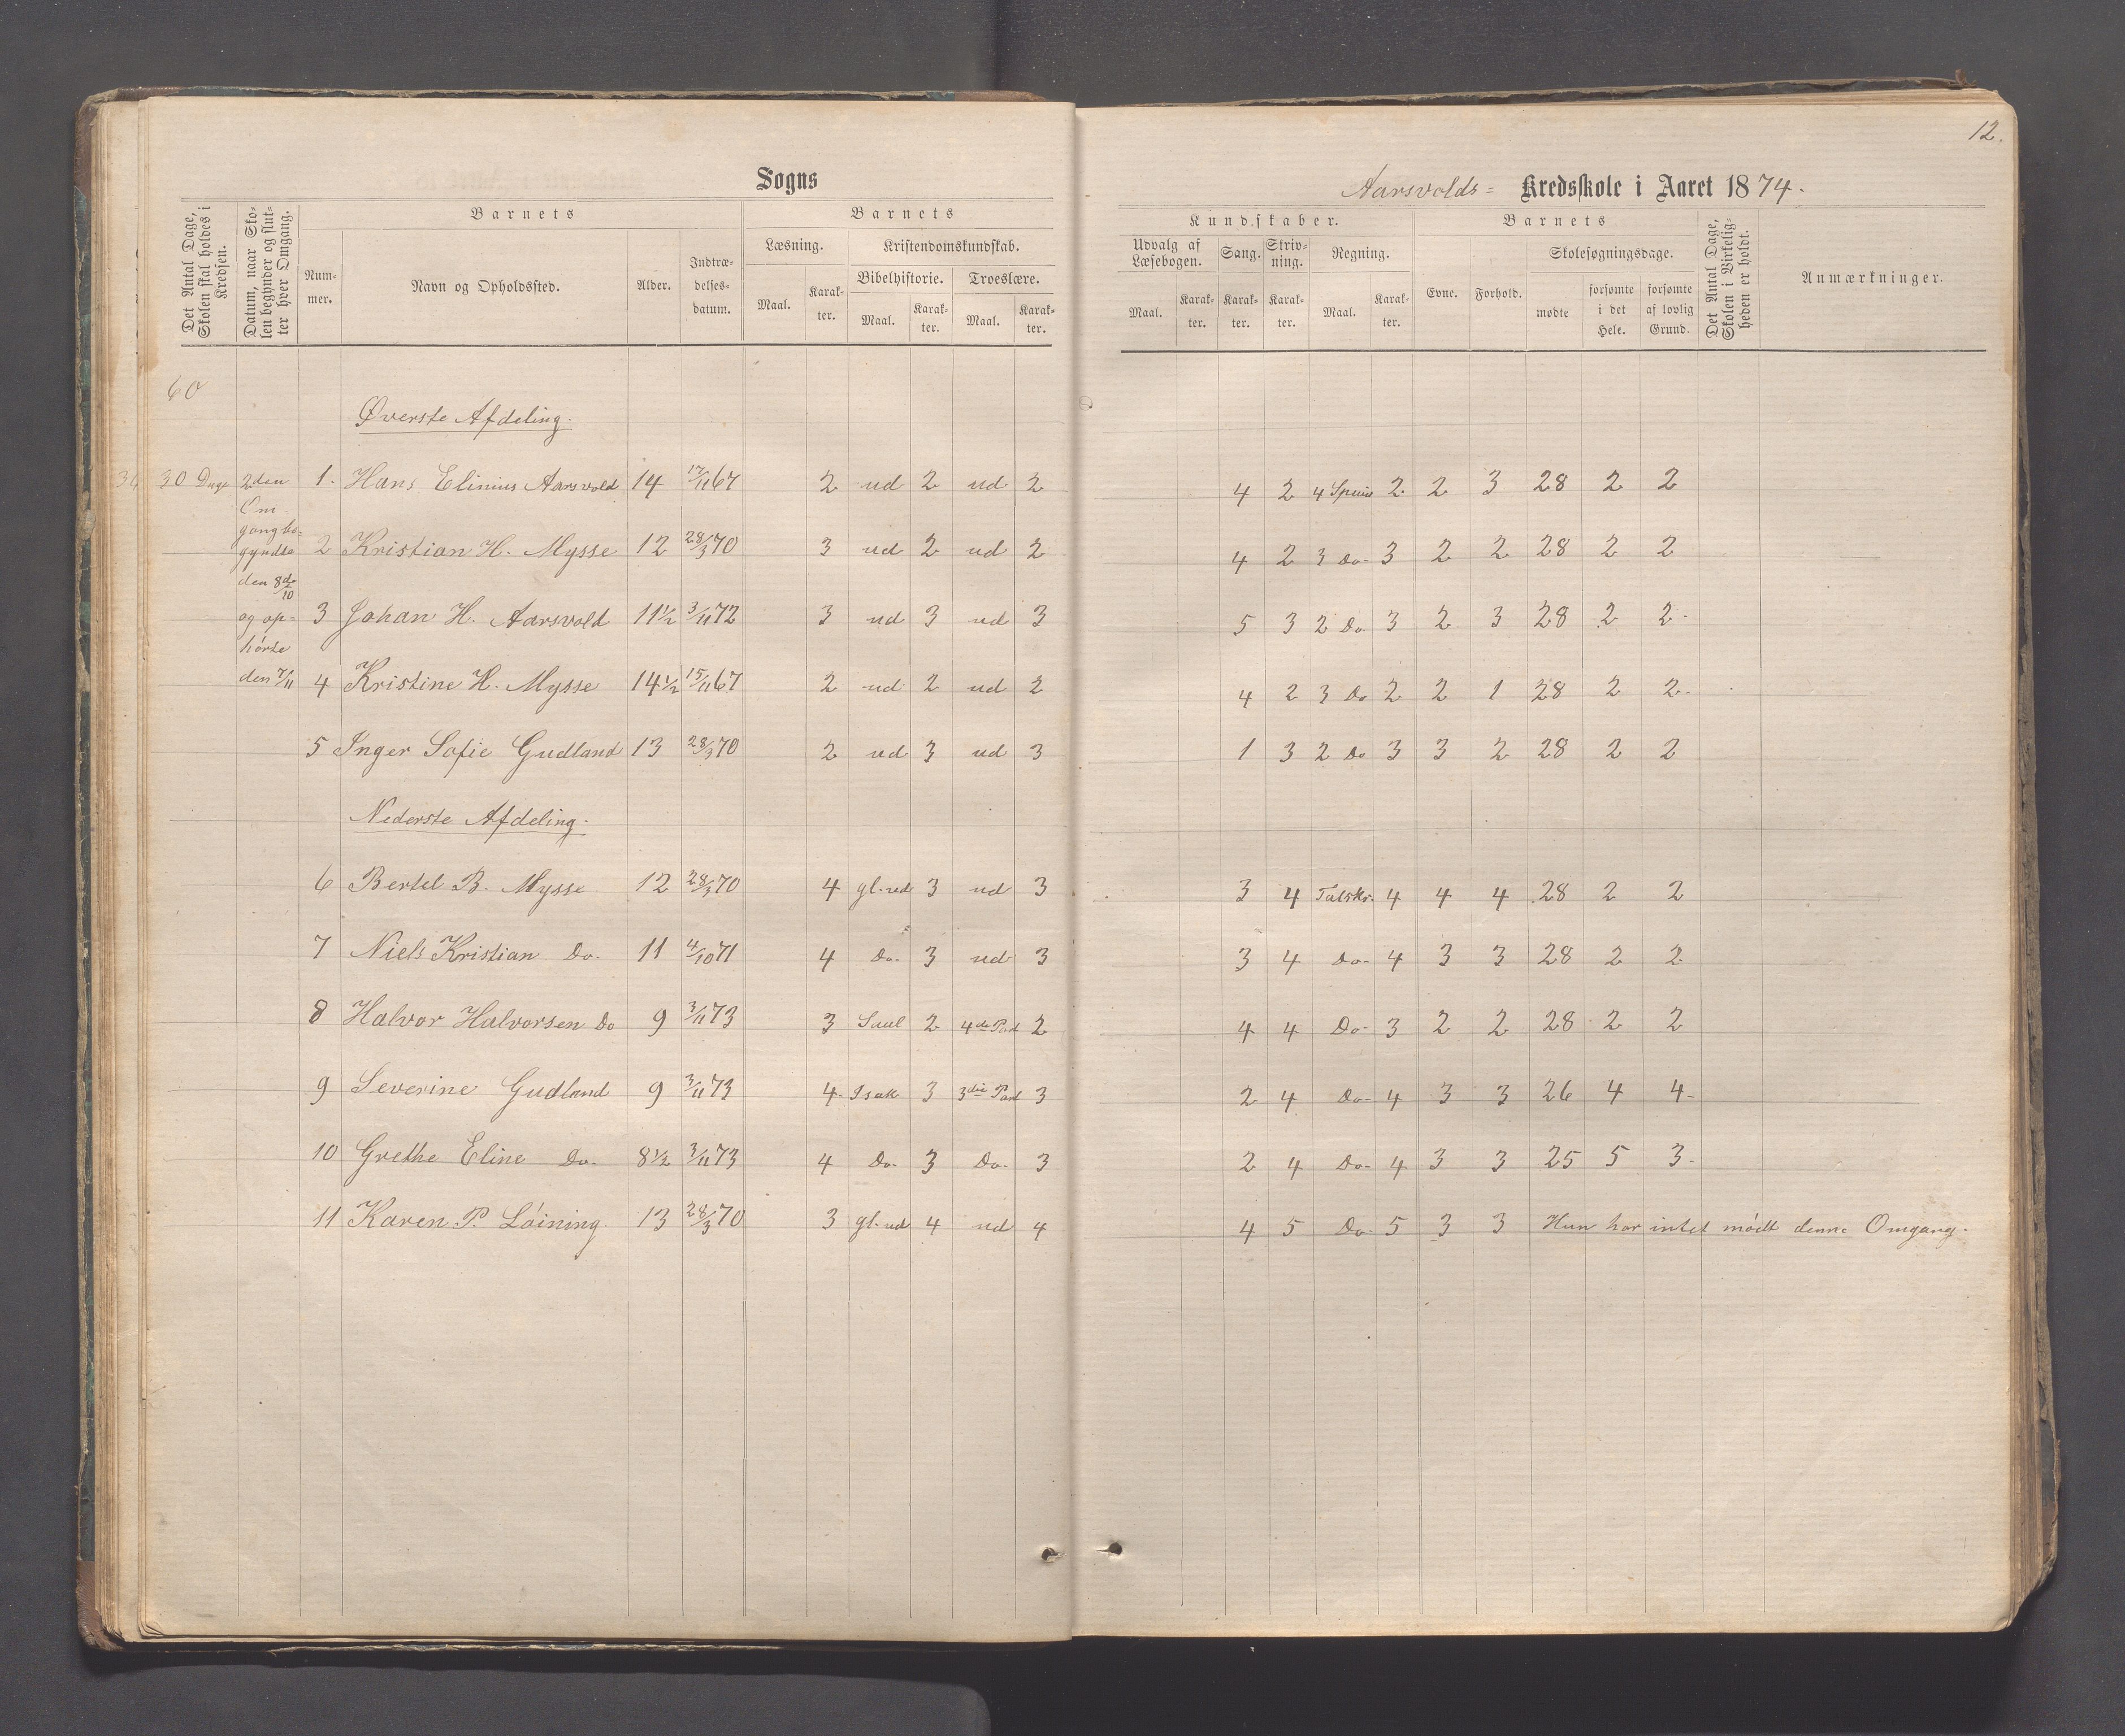 12.
Sogns
Aarsvolds= Kredsskole i Aaret 1874.
Det Antal Dage, Skolen skal holdes i Kredsen.
Datum, naar Skolen begynder og slutter hver Omgang.
Barnets
Nummer.
Navn og Opholdssted.
Alder.
Indtrædelsesdatum.
Barnets
Læsning.
Maal.
Karakter.
Kristendomskundskab.
Bibelhistorie.
Maal.
Karakter.
Troeslære.
Maal.
Karakter.
Kundskaber.
Udvalg af Læsebogen.
Maal.
Karakter.
Sang.
Karakter.
Skrivning.
Karakter.
Regning.
Maal.
Karakter.
Barnets
Evne.
Forhold.
Skolesøgningsdage.
mødte
forsømte i det Hele.
forsømte af lovlig Grund.
Det Antal Dage, Skolen i Virkeligheden er holdt.
Anmærkninger.
60
Øverste Afdeling.
30 Dage
2den
Om-
gang be-
gyndte
den 8de/10
og op-
hørte
den 7/11
1. Hans Elinius Aarsvold 14 17/11 67 2 ud 2 ud 2 4 2 4 Species 2 2 3 28 2 2
2 Kristian H. Mysse 12 28/3 70 3 ud 2 ud 2 4 2 3 Do. 3 2 2 28 2 2
3 Johan H. Aarsvold 11½ 3/11 72 3 ud 3 ud 3 5 3 2 Do. 3 2 3 28 2 2
4 Kristine H. Mysse 14½ 15/11 67 2 ud 2 ud 2 4 2 3 Do 2 2 1 28 2 2
5 Inger Sofie Gudland 13 28/3 70 2 ud 3 ud 3 1 3 2 Do 3 3 2 28 2 2
Nederste Afdeling.
6 Bertel B. Mysse 12 28/3 70 4 gl. ud 3 ud 3 3 4 Talskr. 4 4 4 28 2 2
7 Niels Kristian Do. 11 4/10 71 4 Do. 3 ud 3 3 4 Do. 4 3 3 28 2 2
8 Halvor Halvorsen Do 9 3/11 73 3 Saul 2 4de Part 2 4 4 Do. 3 2 2 28 2 2
9 Severine Gudland 9 3/11 73 4 Isak 3 3die Part 3 2 4 Do. 4 3 3 26 4 4
10 Grethe Eline Do. 8½ 3/11 73 4 Do. 3 Do. 3 2 4 Do. 4 3 3 25 5 3
11 Karen P. Löining 13 28/3 70 3 gl. ud 4 ud 4 4 5 Do. 5 3 3 Hun har intet mödt denne Omgang.